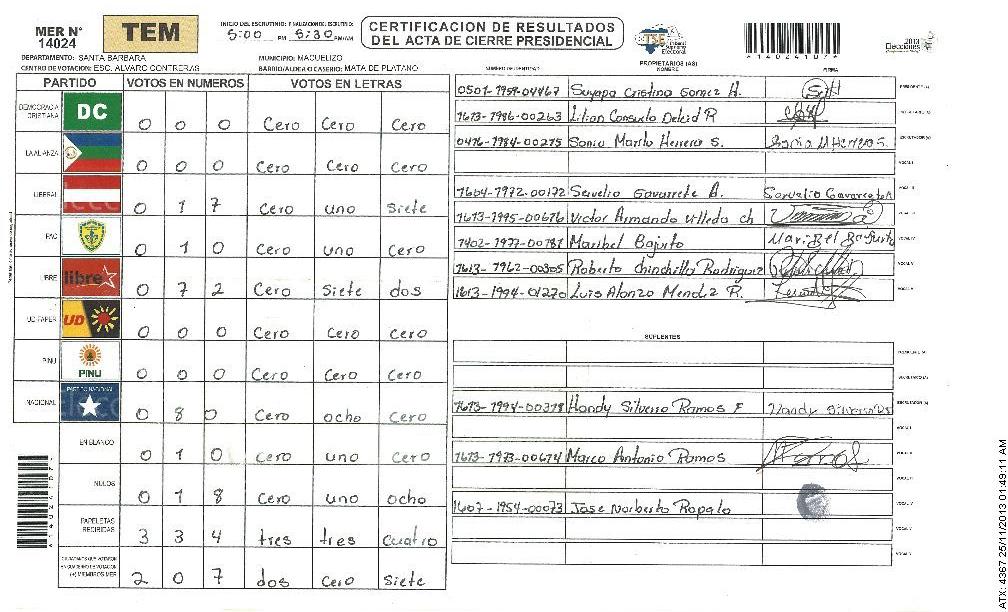 MER N° 14024
TEM
INICIO DEL ESCRUTINIO: FINALIZACION ESCRUTINIO:
5:00 PM 5:30 PM/AM
CERTIFICACION DE RESULTADOS
DEL ACTA DE CIERRE PRESIDENCIAL
TSE Tribunal Supremo Electoral
*1402410/*
2013 Elecciones
DEPARTAMENTO: SANTA BARBARA MUNICIPIO: NACUELIZO
CENTRO DE VOTACION: ESC. ALVARO CONTRERAS BARRIO/ALDEA O CASERIO: MATA DE PLATANO
PARTIDO VOTOS EN NUMEROS VOTOS EN LETRAS
DEMOCRACIA CRISTIANA DC 0 0 0 Cero Cero Cero
LA ALIANZA 0 0 0 Cero Cero Cero
LIBERAL 0 1 7 Cero uno Siete
PAC 0 1 0 Cero uno Cero
LIBRE libre 0 7 2 Cero Siete dos
UD FAPER UD 0 0 0 Cero Cero Cero
PINU PINU 0 0 0 Cero Cero Cero
NACIONAL PARTIDO NACIONAL 0 8 0 Cero ocho Cero
EN BLANCO 0 1 0 Cero uno Cero
NULOS 0 1 8 Cero uno ocho
PAPELETAS RECIBIDAS 3 3 4 tres tres Cuatro
CIUDADANOS QUE VOTARON EN CUADERNO DE VOTACION (+) MIEMBROS MER 2 0 7 dos Cero Siete
NUMERO DE IDENTIDAD PROPIETARIOS (AS) NOMBRE FIRMA
0501-1959-04467 Suyapa Cristina Gomez H. PRESIDENTE (A)
1613-1986-00263 Lilian Consuelo Delcid R SECRETARIO (A)
0416-1984-00275 Sonia Marilo Herrera S. Sonia M Herrera S. ESCRUTADOR (A)
VOCAL I
1604-1972-00172 Servelio Gavarrete A. Servelio Gavarrete A VOCAL II
1613-1995-00676 Victor Armando Villeda ch VOCAL III
1402-1977-00781 Maribel Bajurto Maribel Bajurto VOCAL IV
1613-1962-00305 Roberto Chinchilla Rodriguez VOCAL V
1613-1994-01270 Luis Alonzo Mendez R.
SUPLENTES
PRESIDENTE (A)
SECRETARIO (A)
1613-1994-00378 Handy Silverio Ramos F Handy Silverio ESCRUTADOR (A)
VOCAL I
1613-1973-00674 Marco Antonio Ramos VOCAL II
VOCAL III
1607-1954-00073 Jose Norberto Rapalo VOCAL IV
VOCAL V
ATX: 4367 25/11/2013 01:49:11 AM